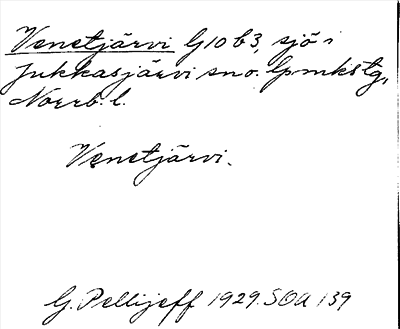 Venetjärvi G10b3, sjö i
Jukkasjärvi sn o. lpmkstg,
Norrb. l.
Venetjärvi.
G. Pellijeff 1929. SOA 139